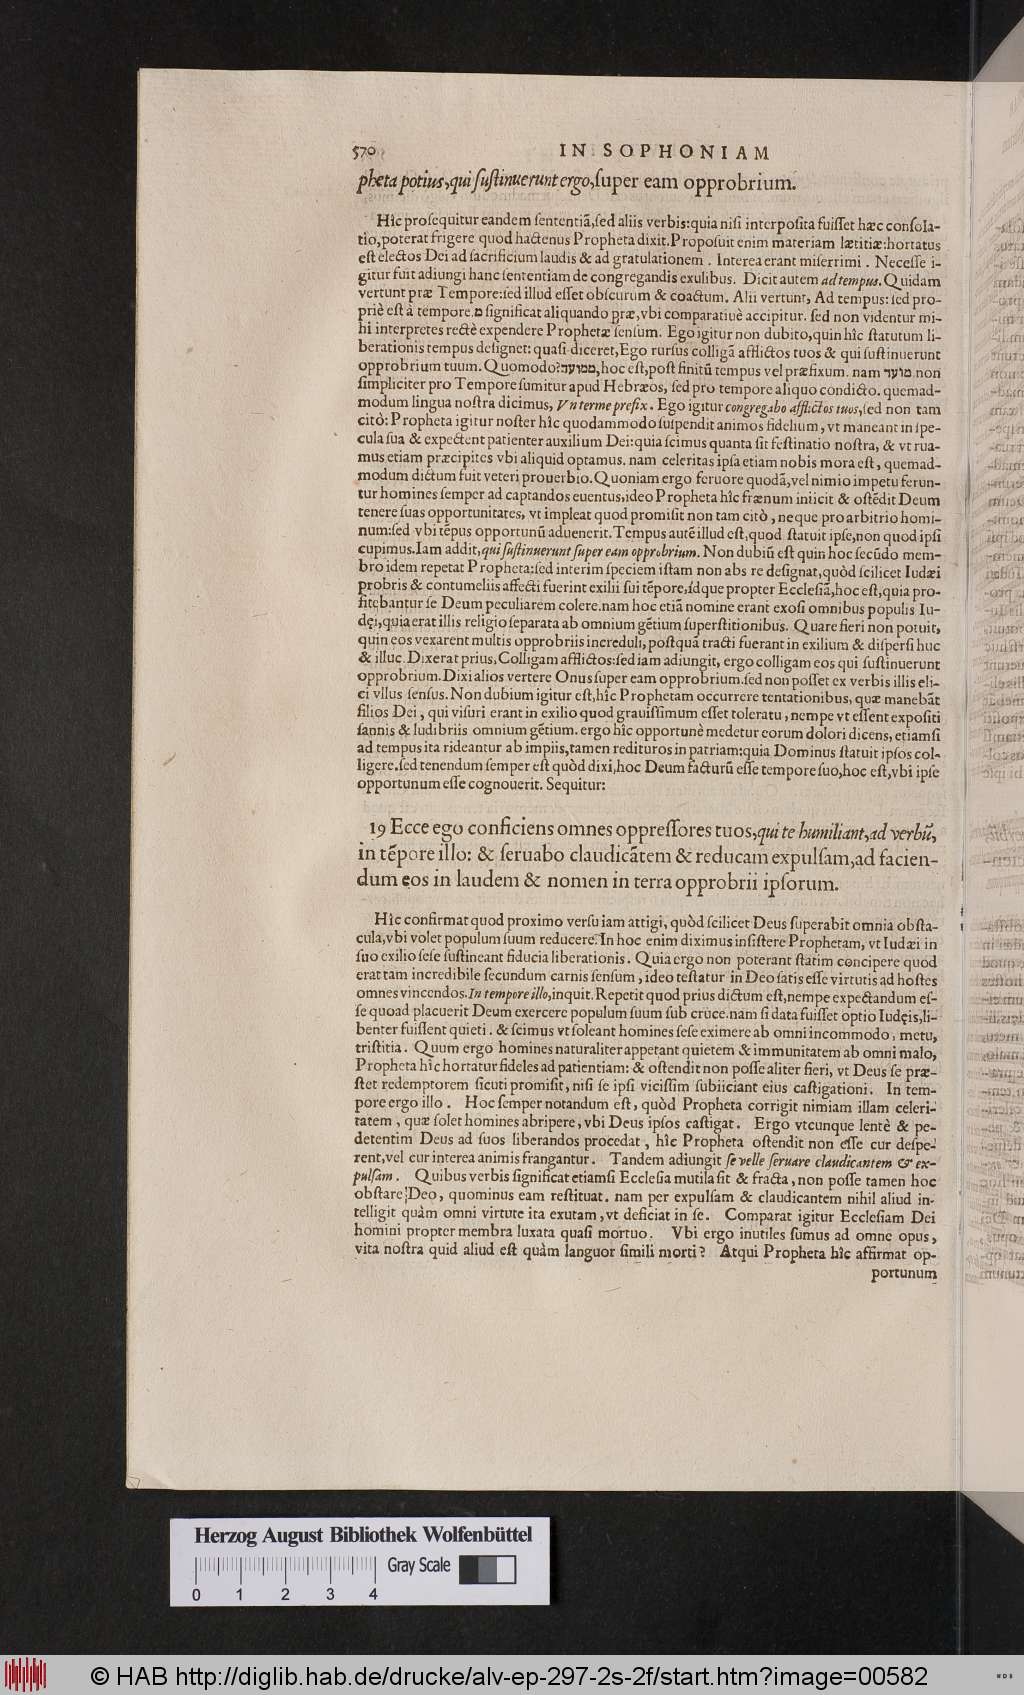 570 IN SOPHONIAM
pheta potius, qui sustinuerunt ergo, super eam opprobrium.
Hîc prosequitur eandem sententiã, sed aliis verbis: quia nisi interposita fuisset hæc consola-
tio, poterat frigere quod hactenus Propheta dixit. Proposuit enim materiam lætitiæ: hortatus
est electos Dei ad sacrificium laudis & ad gratulationem. Interea erant miserrimi. Necesse i-
gitur fuit adiungi hanc sententiam de congregandis exulibus. Dicit autem ad tempus. Quidam
vertunt præ Tempore: sed illud esset obscurum & coactum. Alii vertunt, Ad tempus: sed pro-
priè est à tempore. מ significat aliquando præ, vbi comparatiuè accipitur. sed non videntur mi-
hi interpretes rectè expendere Prophetæ sensum. Ego igitur non dubito, quin hîc statutum li-
berationis tempus designet: quasi diceret, Ego rursus colligã afflictos tuos & qui sustinuerunt
opprobrium tuum. Quomodo? ממועד, hoc est, post finitũ tempus vel præfixum. nam מועד non
simpliciter pro Tempore sumitur apud Hebræos, sed pro tempore aliquo condicto. quemad-
modum lingua nostra dicimus, Vn terme prefix. Ego igitur congregabo afflictos tuos, sed non tam
citò: Propheta igitur noster hîc quodammodo suspendit animos fidelium, vt maneant in spe-
cula sua & expectent patienter auxilium Dei: quia scimus quanta sit festinatio nostra, & vt rua-
mus etiam præcipites vbi aliquid optamus. nam celeritas ipsa etiam nobis mora est, quemad-
modum dictum fuit veteri prouerbio. Quoniam ergo feruore quodã, vel nimio impetu ferun-
tur homines semper ad captandos euentus, ideo Propheta hîc frænum iniicit & ostẽdit Deum
tenere suas opportunitates, vt impleat quod promisit non tam citò, neque pro arbitrio homi-
num: sed vbi tẽpus opportunũ aduenerit. Tempus autẽ illud est, quod statuit ipse, non quod ipsi
cupimus. Iam addit, qui sustinuerunt super eam opprobrium. Non dubiũ est quin hoc secũdo mem-
bro idem repetat Propheta: sed interim speciem istam non abs re designat, quòd scilicet Iudæi
probris & contumeliis affecti fuerint exilii sui tẽpore, ídque propter Ecclesiã, hoc est, quia pro-
fitebantur se Deum peculiarem colere. nam hoc etiã nomine erant exosi omnibus populis Iu-
dęi, quia erat illis religio separata ab omnium gẽtium superstitionibus. Quare fieri non potuit,
quin eos vexarent multis opprobriis increduli, postquã tracti fuerant in exilium & dispersi huc
& illuc. Dixerat prius, Colligam afflictos: sed iam adiungit, ergo colligam eos qui sustinuerunt
opprobrium. Dixi alios vertere Onus super eam opprobrium. sed non posset ex verbis illis eli-
ci vllus sensus. Non dubium igitur est, hîc Prophetam occurrere tentationibus, quæ manebãt
filios Dei, qui visuri erant in exilio quod grauissimum esset toleratu, nempe vt essent expositi
sannis & ludibriis omnium gẽtium. ergo hîc opportunè medetur eorum dolori dicens, etiamsi
ad tempus ita rideantur ab impiis, tamen redituros in patriam: quia Dominus statuit ipsos col-
ligere. sed tenendum semper est quòd dixi, hoc Deum facturũ esse tempore suo, hoc est, vbi ipse
opportunum esse cognouerit. Sequitur:
19 Ecce ego conficiens omnes oppressores tuos, qui te humiliant, ad verbũ,
in tẽpore illo: & seruabo claudicãtem & reducam expulsam, ad facien-
dum eos in laudem & nomen in terra opprobrii ipsorum.
Hîc confirmat quod proximo versu iam attigi, quòd scilicet Deus superabit omnia obsta-
cula, vbi volet populum suum reducere. In hoc enim diximus insistere Prophetam, vt Iudæi in
suo exilio sese sustineant fiducia liberationis. Quia ergo non poterant statim concipere quod
erat tam incredibile secundum carnis sensum, ideo testatur in Deo satis esse virtutis ad hostes
omnes vincendos. In tempore illo, inquit. Repetit quod prius dictum est, nempe expectandum es-
se quoad placuerit Deum exercere populum suum sub cruce. nam si data fuisset optio Iudęis, li-
benter fuissent quieti. & scimus vt soleant homines sese eximere ab omni incommodo, metu,
tristitia. Quum ergo homines naturaliter appetant quietem & immunitatem ab omni malo,
Propheta hîc hortatur fideles ad patientiam: & ostendit non posse aliter fieri, vt Deus se præ-
stet redemptorem sicuti promisit, nisi se ipsi vicissim subiiciant eius castigationi. In tem-
pore ergo illo. Hoc semper notandum est, quòd Propheta corrigit nimiam illam celeri-
tatem, quæ solet homines abripere, vbi Deus ipsos castigat. Ergo vtcunque lentè & pe-
detentim Deus ad suos liberandos procedat, hîc Propheta ostendit non esse cur despe-
rent, vel cur interea animis frangantur. Tandem adiungit se velle seruare claudicantem & ex-
pulsam. Quibus verbis significat etiamsi Ecclesia mutila sit & fracta, non posse tamen hoc
obstare Deo, quominus eam restituat. nam per expulsam & claudicantem nihil aliud in-
telligit quàm omni virtute ita exutam, vt deficiat in se. Comparat igitur Ecclesiam Dei
homini propter membra luxata quasi mortuo. Vbi ergo inutiles sumus ad omne opus,
vita nostra quid aliud est quàm languor simili morti? Atqui Propheta hîc affirmat op-
portunum
Herzog August Bibliothek Wolfenbüttel
Gray Scale
0 1 2 3 4
© HAB http://diglib.hab.de/drucke/alv-ep-297-2s-2f/start.htm?image=00582